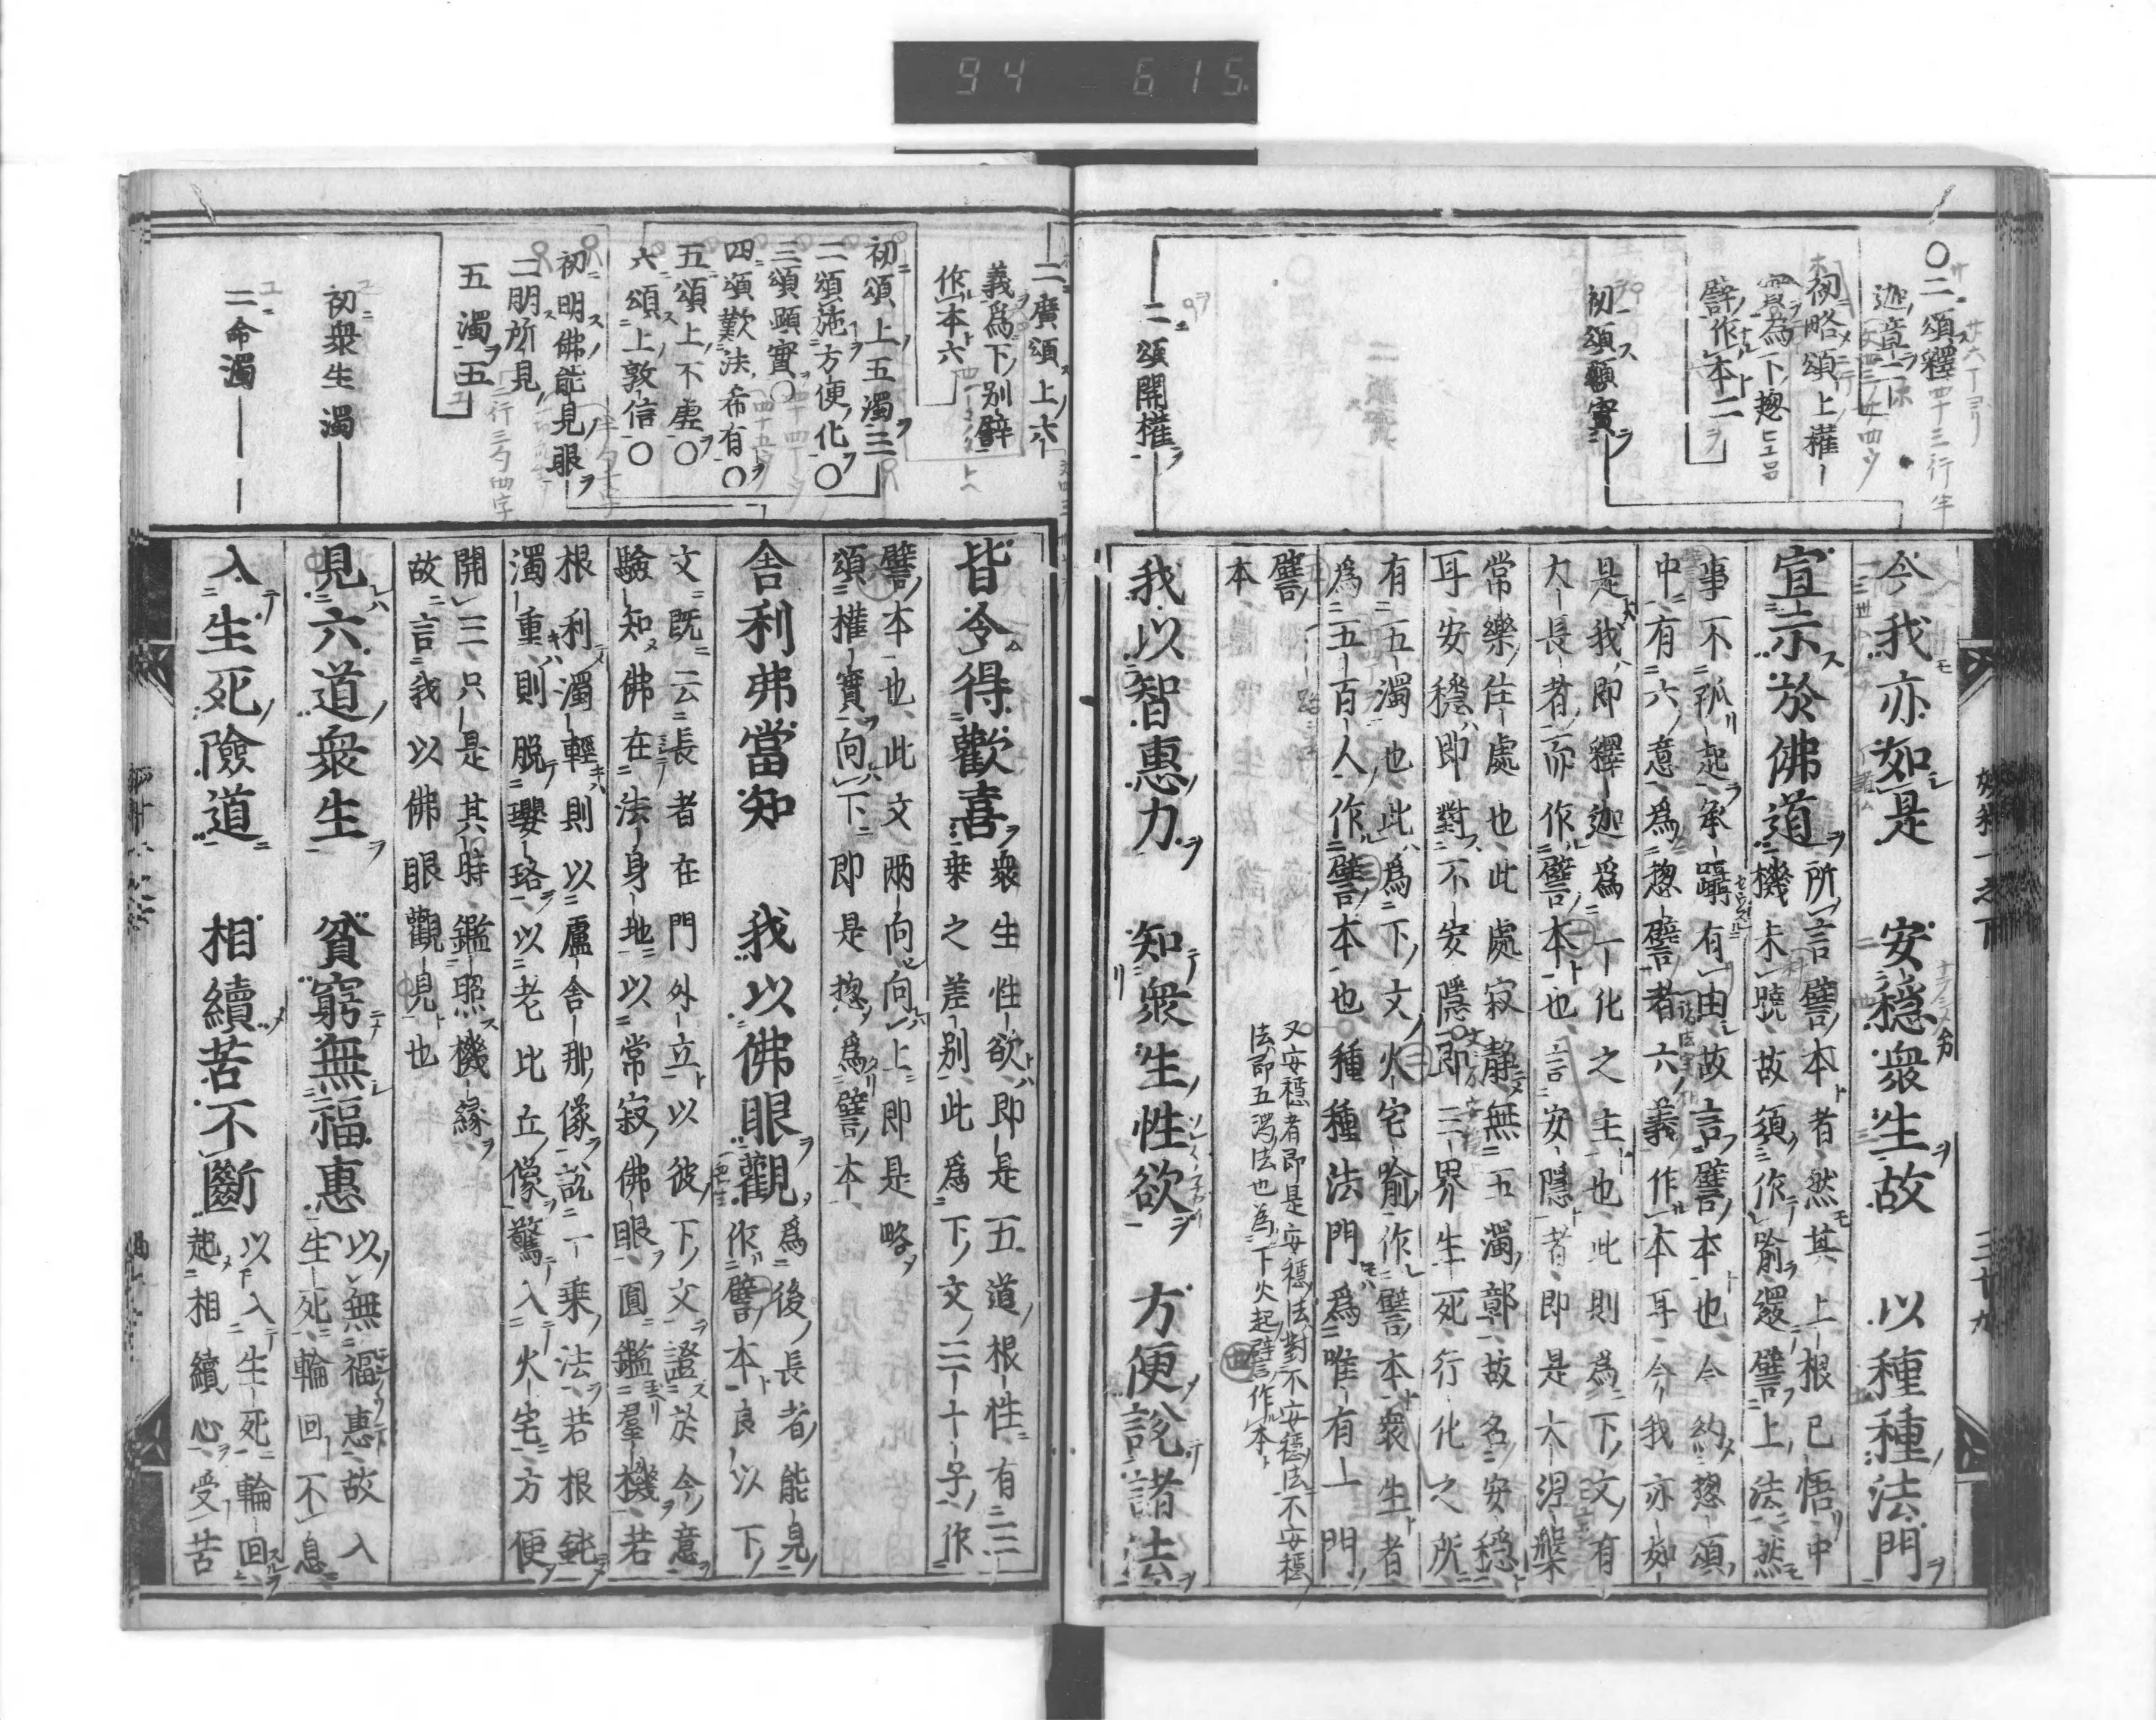 94 6 15
○二頌釋
迦章二
初略頌上權
實為下揔
譬作本二
初頌顯實
二頌開權
今我亦如是　安穩衆生故　以種種法門
宣示於佛道
所言譬本者然其上根已悟中
機未曉故須作喻還譬上法然
事不孤起承躡有由故言譬本也今約揔頌
中有六意為揔譬者六義作本耳今我亦如
是我即釋迦為一化之主也此則為下文有
大長者而作譬本也言安隱者即是大涅槃
常樂住處也此處寂靜無五濁鄣故名安穩
耳安穩即對不安隱即三界生死行化之所
有五濁也此為下文火宅喻作譬本衆生者
為五百人作譬本也種種法門為唯有一門
譬
本
又安穩者即是安穩法對不安穩法不安穩
法即五濁法也為下火起譬作本
我以智惠力　知衆生性欲　方便說諸法
妙科一之下
三十九
二廣頌上六
義為下別譬
作本六
初頌上五濁三
二頌施方便化○
三頌顯實○
四頌歎法希有○
五頌上不虛○
六頌上敦信○
初明佛能見眼
二明所見
五濁五
初衆生濁
二命濁
皆令得歡喜
衆生性欲即是五道根性有三三
乗之差別此為下文三十子作
譬本也此文兩向向上即是略
頌權實向下即是揔為譬本
舍利弗當知　我以佛眼觀
為後長者能見
作譬本良以下
文既云長者在門外立以彼下文證於今意
驗知佛在法身地以常寂佛眼圓鑑羣機若
根利濁輕則以盧舍那像說一乗法若根鈍
濁重則脫瓔珞以老比丘像驚入火宅方便
開三只是其時鑑照機緣
故言我以佛眼觀見也
見六道衆生　貧窮無福惠
以無福惠故入
生死輪回不息
入生死險道　相續苦不斷
以入生死輪回
起相續心受苦